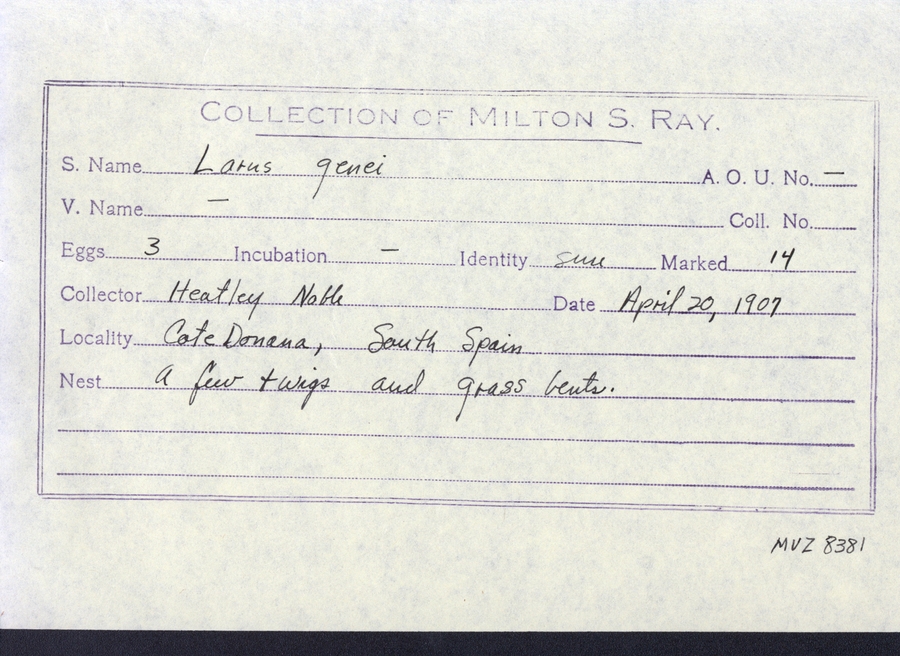 COLLECTION OF MILTON S. RAY.
S. Name Larus genei A. O. U. No. —
V. Name — Coll. No.
Eggs 3 Incubation — Identity sure Marked 14
Collector Heatley Noble Date April 20, 1907
Locality Cote Donana, South Spain
Nest A few twigs and grass bents.
MVZ 8381